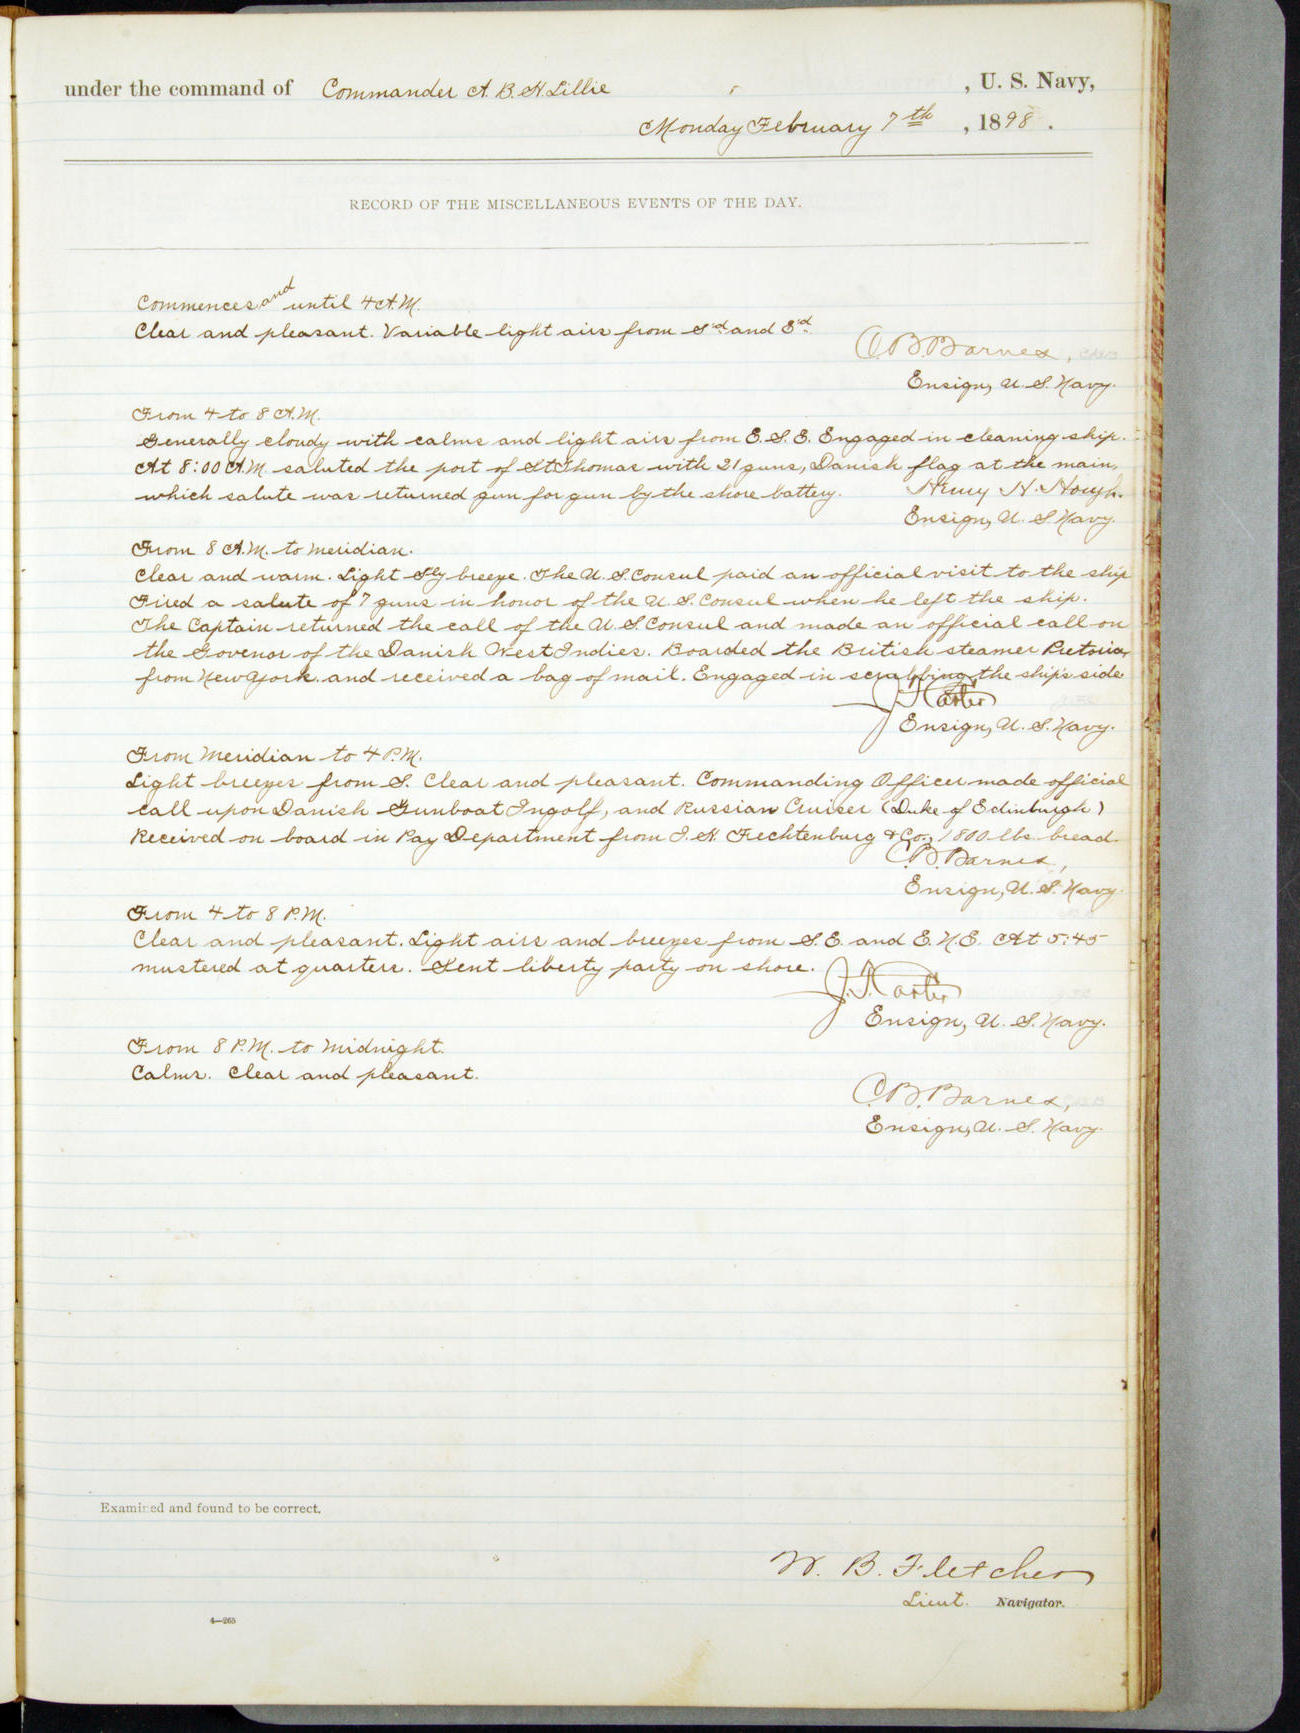 under the command of Commander A. B. H. Lillie , U. S. Navy,
Monday February 7th , 1898 .
RECORD OF THE MISCELLANEOUS EVENTS OF THE DAY.
Commences and until 4 A.M.
Clear and pleasant. Variable light airs from Sd and Ed.
C. B. Barnes,
Ensign, U. S. Navy.
From 4 to 8 A.M.
Generally cloudy with calms and light airs from E. S. E. Engaged in cleaning ship.
At 8:00 A.M. saluted the port of St Thomas with 21 guns, Danish flag at the main,
which salute was returned gun for gun by the shore battery. Henry H. Hough.
Ensign, U. S. Navy.
From 8 A.M. to meridian.
Clear and warm. Light Sly breeze. The U. S. Consul paid an official visit to the ship
Fired a salute of 7 guns in honor of the U. S. Consul when he left the ship.
The Captain returned the call of the U. S. Consul and made an official call on
the Govenor of the Danish West Indies. Boarded the British steamer Pretoria,
from New York. and received a bag of mail. Engaged in scrubbing the ship's side
Ensign, U. S. Navy.
From Meridian to 4 P.M.
Light breezes from S. Clear and pleasant. Commanding Officer made official
call upon Danish Gunboat Ingolf, and Russian Cruiser (Duke of Edinburgh)
Received on board in Pay Department from J. H. Fechtenburg & Co., 1800 lbs bread.
C. B. Barnes,
Ensign, U. S. Navy.
From 4 to 8 P.M.
Clear and pleasant. Light airs and breezes from S. E. and E. N. E. At 5:45
mustered at quarters. Sent liberty party on shore.
Ensign, U. S. Navy.
From 8 P.M. to midnight.
Calms. Clear and pleasant.
C. B. Barnes,
Ensign, U. S. Navy.
Examined and found to be correct.
W. B. Fletcher
Lieut. Navigator.
4—265